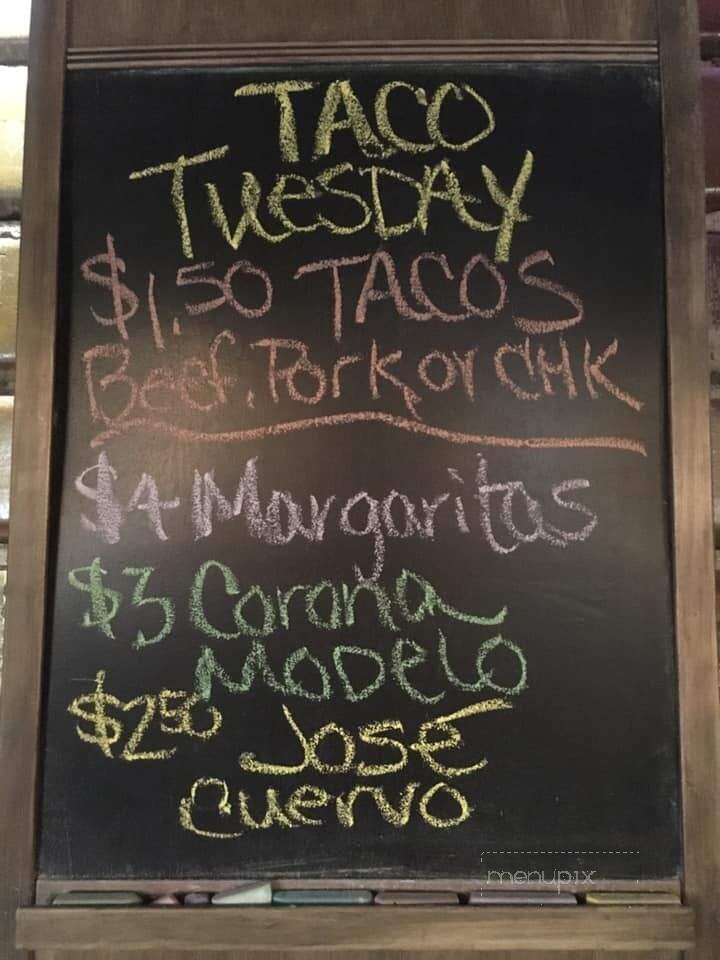 TACO
TUESDAY
$1.50 TACOS
Beef, Pork, or CHK
$4 Margaritas
$3 Corona
MODELO
$2.50 José
Cuervo
menupix